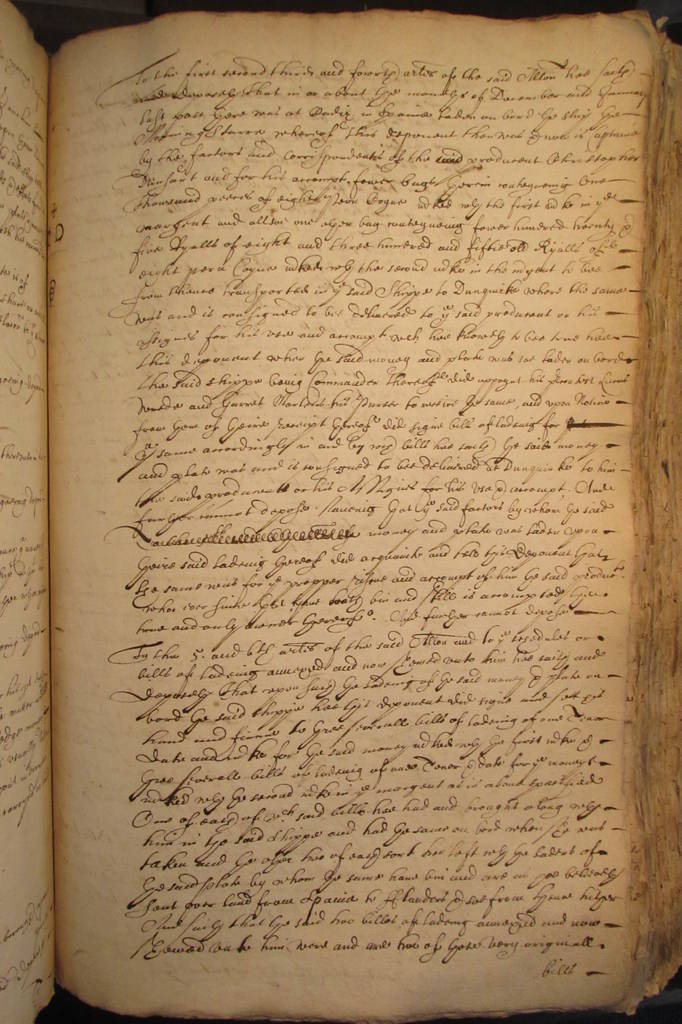 To the first second third and fowerth artes of the said Allon hee saith
and deposeth that in or about the moneths of December and January
last past there was at Cadiz in Spaine laden on board the shipp the
Morning Starre whereof this deponent then was & now is
by the factors and Correspondents of the said producent Christopher
and for his accompt fower baggs therein conteyneing One
thousand peeces of eight new Coyne marked with the first marke in the
margent and allsoe one other bag conteyneing fower hundred twenty &
five Ryalls of eight and three hundred and fiftie old Ryalls of
eight peru Coyne marked with the second marke in the margent to bee
from thence transported in the said Shippe to Dunquirke where the same
was and is consigned to be delivered to the said producent or his
Assignes for his use and accompt which hee knoweth to bee true hee
this deponent when the said money and plate was soe laden on bord
the said shippe being Commander thereof did appoynt his
and Garret his Purser to receive the same, and upon Notice
from them of theire receipt thereof did signe bills of lading for
the same accordingly in and by which bills hee saith the said money
and plate was and is consigned to bee delivered at Dunquirke to him
the said producent or his Assignes for his use & accompt, And
further cannot depose. Saveing that the said factors by whom the said
money and plate was laden upon
theire said ladeing thereof did acquainte and tell this deponent that
the same was for the propper use and accompt of him the said producent
who ever since hath bin and still is accompted the
true and only owner thereof. And further cannot depose
To the 5th. and 6th artes of the said Allon and to the scedules or
bills of ladeing annexed and now shewed unto him hee saith and
deposeth That upon such the ladeing of the said money & plate on
bord the said shippe hee this deponent did signe and sett his
hand and firme to three severall bills of ladeing of one Tenor
Date and marke for the said money marked with the first marke &
three severall bills of ladeing of one Tenor & date for the moneys
marked with the second marke in the margent as is above specified
One of each of which said bills hee had and brought along with
him in the said shippe and had the same on bord when shee was
taken and the other two of each sort hee left with the laders of
the said plate by whom the same have bin and are as hee beleeveth
sent over land from Spaine to fflanders & soe from thence hither
And saith that the said two billes of ladeing annexed and now
shewed unto him were and are two of those very originall
bills